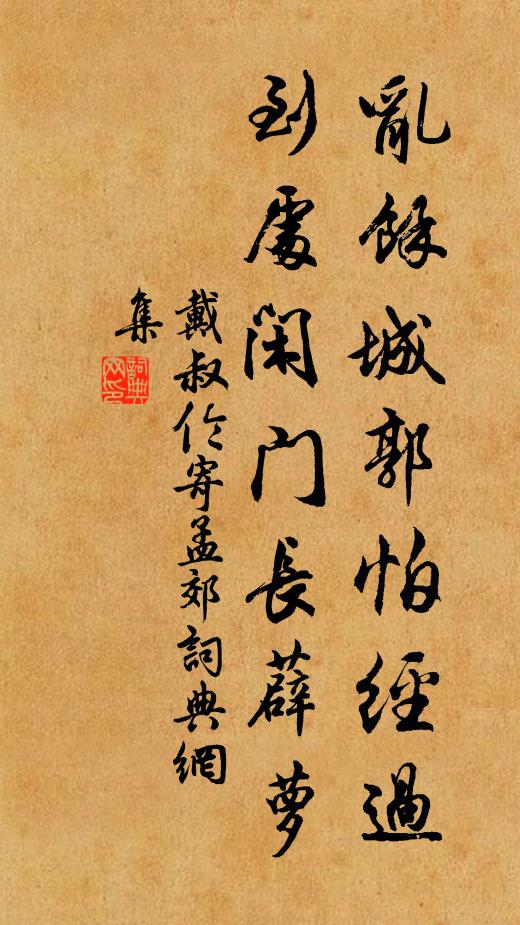 亂餘城郭怕經過
到處閑門長薜蘿
戴叔伦寄孟郊詞典網
集
詞典
网印